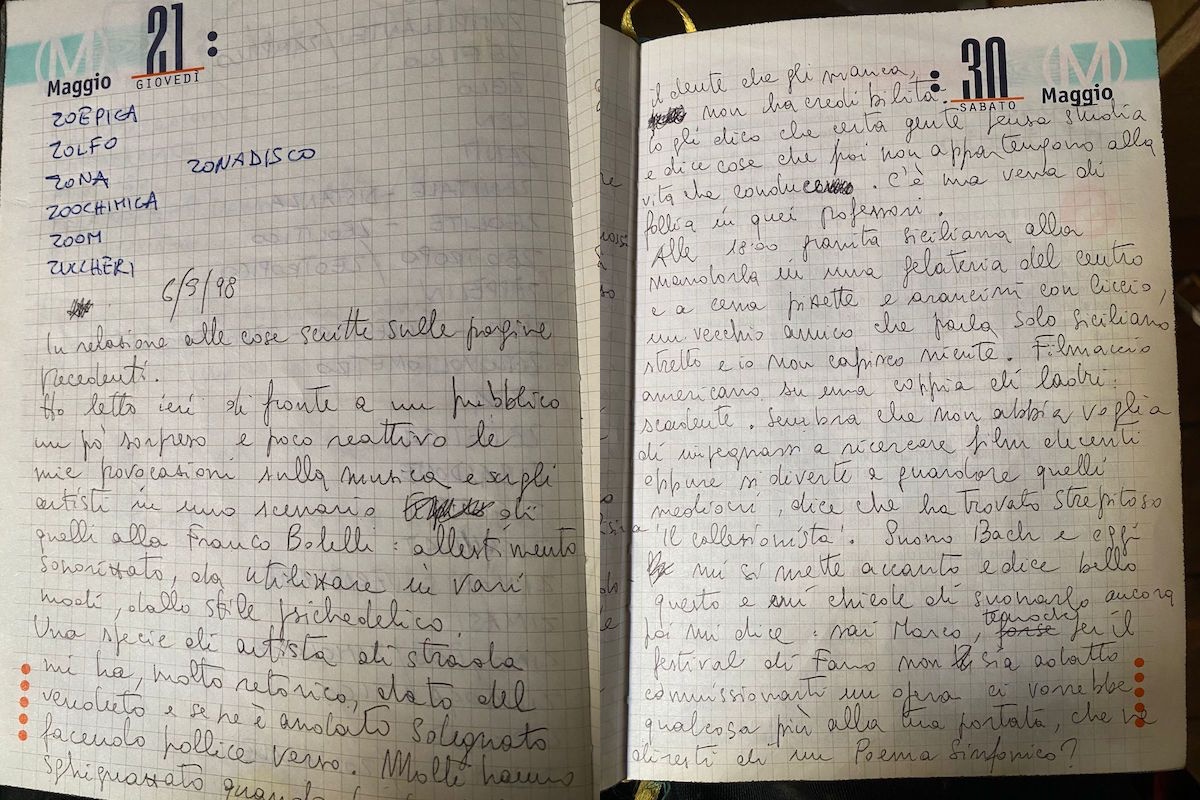 21
Maggio
GIOVEDÌ
ZOEPICA
ZOLFO
ZONADISCO
ZONA
ZOOCHIMICA
ZOOM
ZUCCHERI
6/9/98
In relazione alle cose scritte sulle pagine
precedenti.
Ho letto ieri di fronte a un pubblico
un pò sorpreso e poco reattivo le
mie provocazioni sulla musica e sugli
artisti in uno scenario di
quelli alla Franco Bolelli: allestimento
sonorizzato, da utilizzare in vari
modi, dallo stile psichedelico.
Una specie di artista di strada
mi ha, molto retorico, dato del
venduto e se ne è andato sdegnato
facendo pollice verso. Molti hanno
sghignazzato quando
il dente che gli manca,
non ha credibilità.
30
SABATO
Maggio
Io gli dico che certa gente pensa studia
e dice cose che poi non appartengono alla
vita che conduce. C'è una vena di
follia in quei professori.
Alle 18:00 granita siciliana alla
mandorla in una gelateria del centro
e a cena pizzette e arancini con Ciccio,
un vecchio amico che parla solo siciliano
stretto e io non capisco niente. Filmaccio
americano su una coppia di ladri:
scadente. Sembra che non abbia voglia
di impegnarsi a ricercare film decenti
oppure si diverte a guardare quelli
mediocri, dice che ha trovato strepitoso
'Il collezionista'. Suono Bach e egli
mi si mette accanto e dice bello
questo e mi chiede di suonarlo ancora
poi mi dice: sai Marco, temo che per il
festival di Fano non sia adatto
commissionarti un opera ci vorrebbe
qualcosa più alla tua portata, che ne
diresti di un Poema Sinfonico?